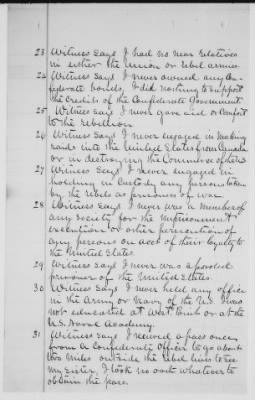 23 Witness Says I had no near relatives
in either the Union or rebel armies.
24 Witness Says I never owned any Con-
federate bonds, I did nothing to support
the Credits of the Confederate Government
25 Witness Says I never gave aid or Comfort
to the rebellion.
26 Witness Says I never engaged in making
raids into the United States from Canada
or in destroying the Commerce of the U.S.
27 Witness Says I never engaged in
holding in Custody any persons taken
by the rebels as prisoners of war
28 Witness Says I never was a member of
any Society for the imprisonment
execution or other persecution of
any persons on acct of their loyalty to
the United States.
29 Witness Says I never was a paroled
prisoner of the United States.
30 Witness Says I never held any office
in the Army or Navy of the U.S. I was
not educated at West Point or at the
U.S. Naval Academy.
31 Witness Says I received a pass once
from a Confederate Officer to go about
two Miles outside the rebel lines to see
my Sister, I took no oath whatever to
obtain the pass.